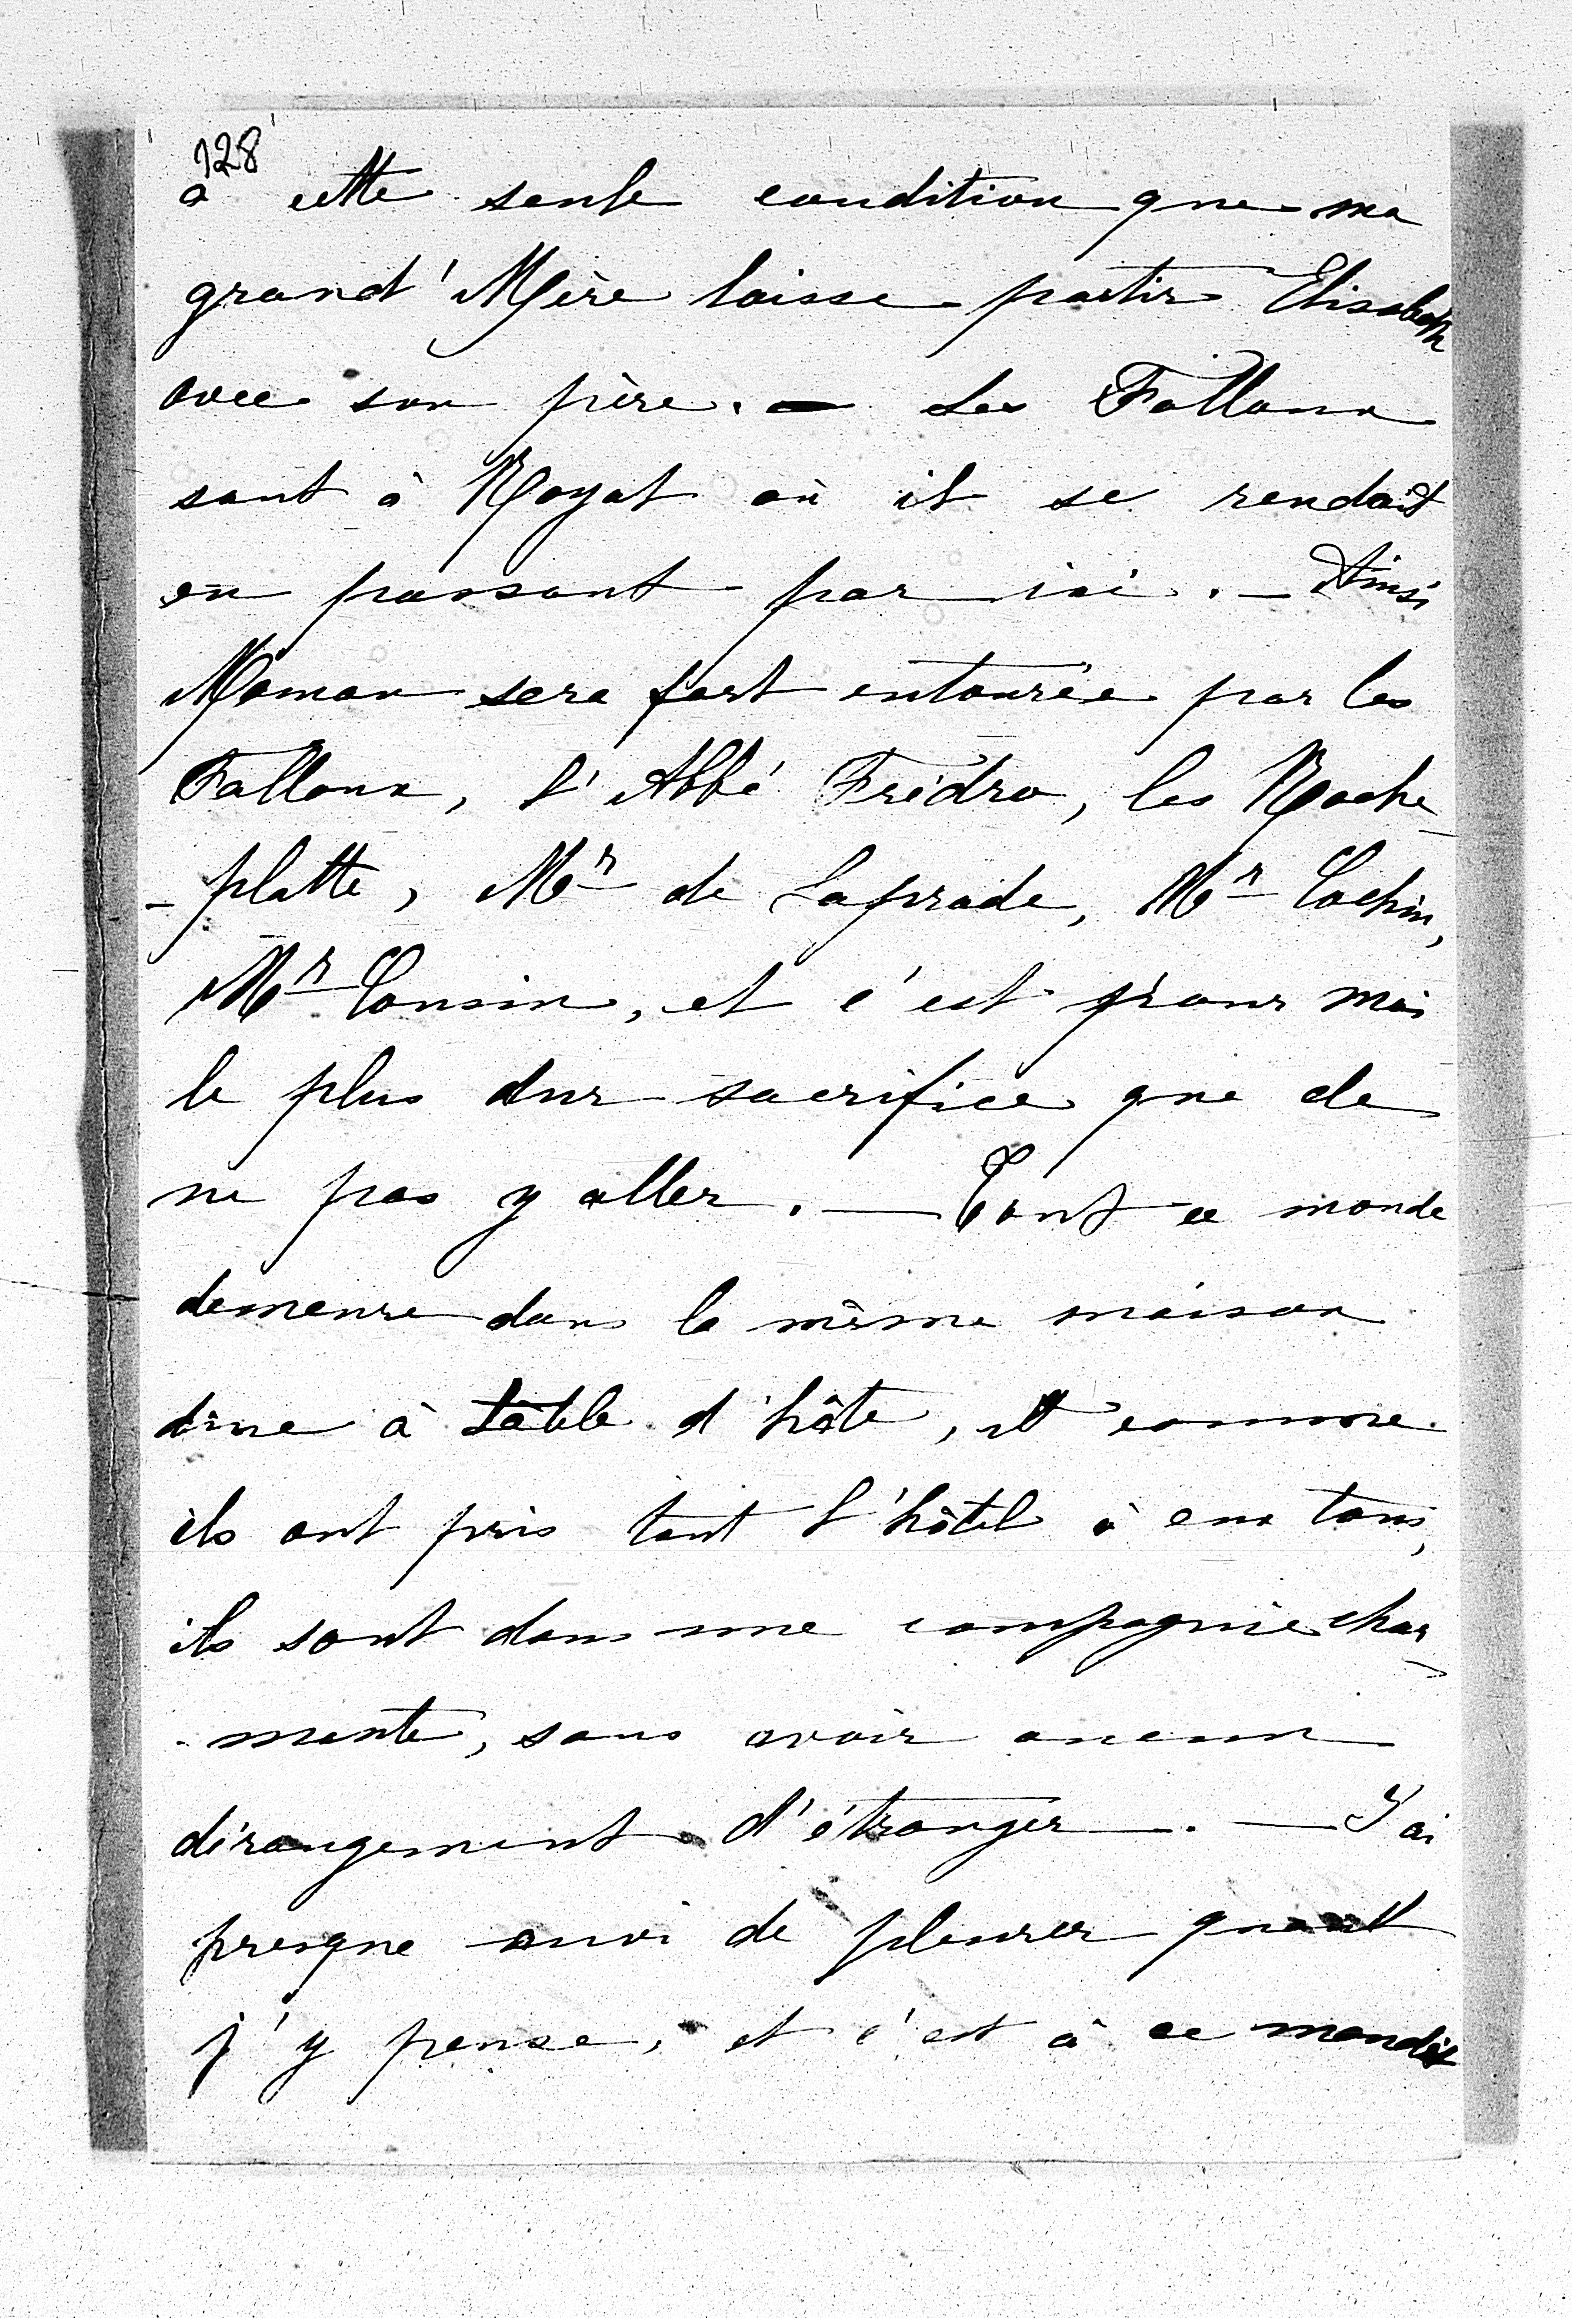 128
à cette seule condition que ma
grand'Mère laisse partir Elisabeth
avec son père. — Les Falloux
sont à Royat où il se rendait
en passant par ici. — Ainsi
Maman sera fort entourée par les
Falloux, l'Abbé Frédro, les Roche_
_platte, Mr de Laprade, Mr Cochin,
Mr Cousin, et c'est pour moi
le plus dur sacrifice que de
ne pas y aller. — Tout ce monde
demeure dans la même maison
dîne à table d'hôte, et comme
ils ont pris tout l'hôtel à eux tous,
ils sont dans une compagnie char_
_mante, sans avoir aucun
dérangement d'étranger. — J'ai
presque envi de pleurer quant
j'y pense, et c'est à ce maudit